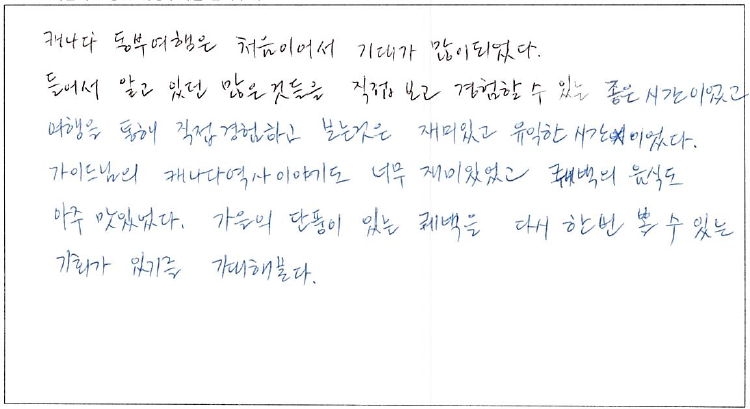 캐나다 동부여행은 처음이어서 기대가 많이되었다.
들어서 알고 있던 많은것들을 직접 보고 경험할 수 있는 좋은 시간이었고
여행을 통해 직접경험하고 보는것은 재미있고 유익한 시간이었다.
가이드님의 캐나다역사이야기도 너무 재미있었고 퀘백의 음식도
아주 맛있었다. 가을의 단풍이 있는 퀘백을 다시 한번 볼 수 있는
기회가 있기를 기대해본다.